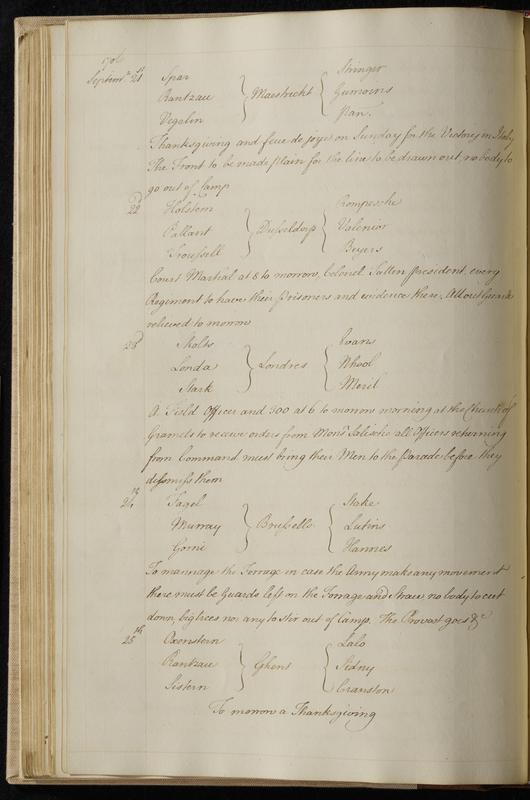 1706
Septemr 21st Spar Stringer
Rantzau } Maestricht { Gumoins
Vegelin Pan.
Thanksgiving and feue de joye on Sunday for the Victory in Italy
The Front to be made plain for the line to be drawn out, no body to
go out of Camp
22d Holstein Trompesche
Pallant } Dusseldorp { Valenior
Troussell Beyers
Court Martial at 8 to morrow, Colonel Sutton president, every
Regiment to have their Prisoners and evidence there, All out Guards
relieved to morrow
23d Sholts Evans
Londa } Londres { Nhool
Stark Meril
A Field Officer and 300 at 6 to morrow morning at the Church of
Gramets to receive orders from Monsr Salische all Officers returning
from Command must bring their Men to the Parade before they
dissmiss them
24th Fagel Stake
Murray } Brussells { Lutins
Gorrie Hannes
To mannage the Forrage in case the Army make any movement
there must be Guards left on the Forrage and Straw, no body to cut
down big trees nor any to stir out of Camp. The Provost goes &c
25th Oxenstern Lalo
Rantzau } Ghent { Sidny
Sistern Cranston
To morrow a Thanksgiving